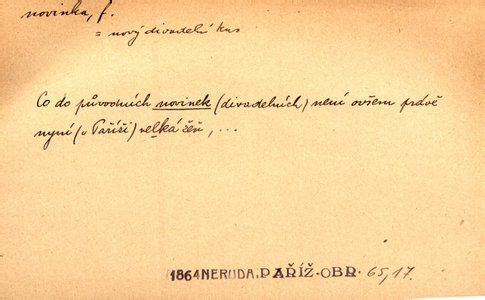 novinka, f.
= nový divadelní kus
Co do původních novinek (divadelních) není ovšem právě
nyní (v Paříži) velká žeň, ...
1864 NERUDA, PAŘÍŽ. OBR. 65,17.